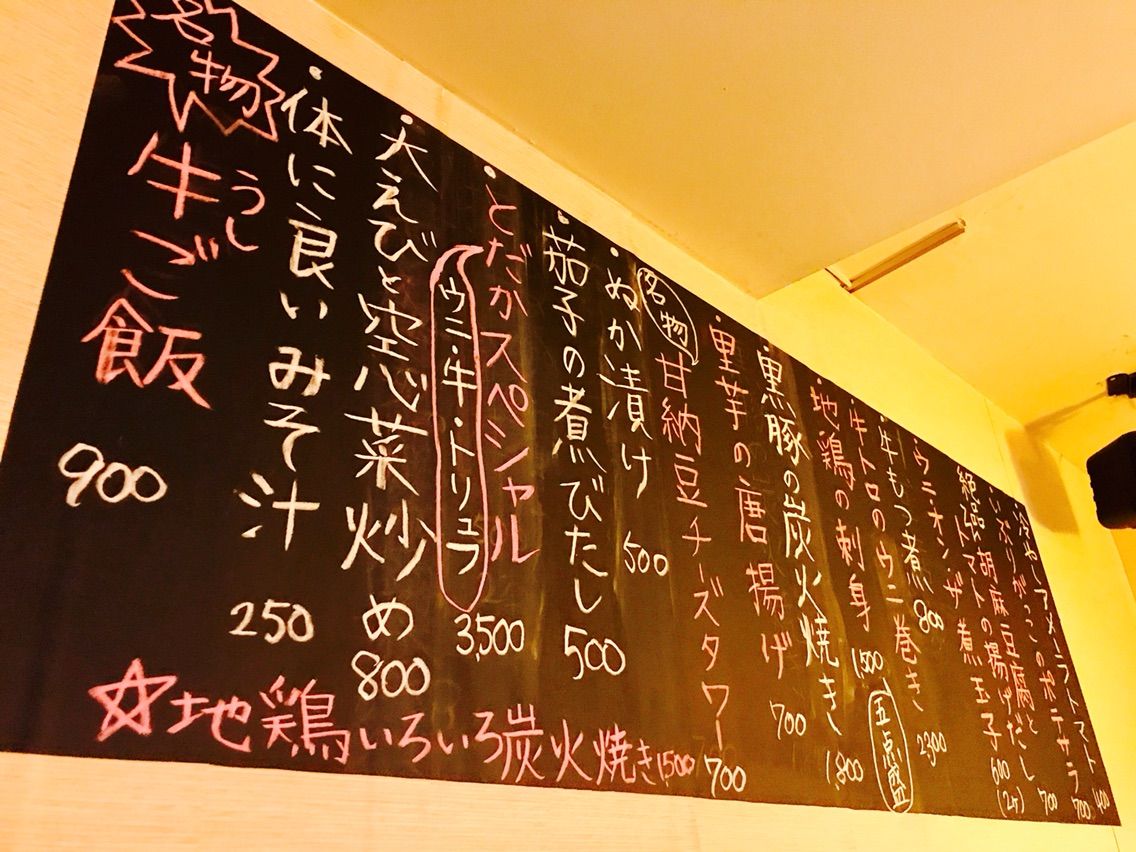 ・冷やしアメーラトマト 400
・いぶりがっこのポテサラ 700
絶品 胡麻豆腐と
トマトの揚げだし 700
・ウニオンザ煮玉子 600 (2ヶ)
・牛もつ煮 800
・牛トロのウニ巻き 2300
・地鶏の刺身 1,500 五点盛
・黒豚の炭火焼き 1,800
・里芋の唐揚げ 700
名物 甘納豆チーズタワー 700
・ぬか漬け 500
・茄子の煮びたし 500
・とだかスペシャル
ウニ・牛・トリュフ 3,500
・大えびと空心菜炒め 800
・体に良いみそ汁 250
名物
牛ご飯 900
うし
☆地鶏いろいろ炭火焼き 1,500